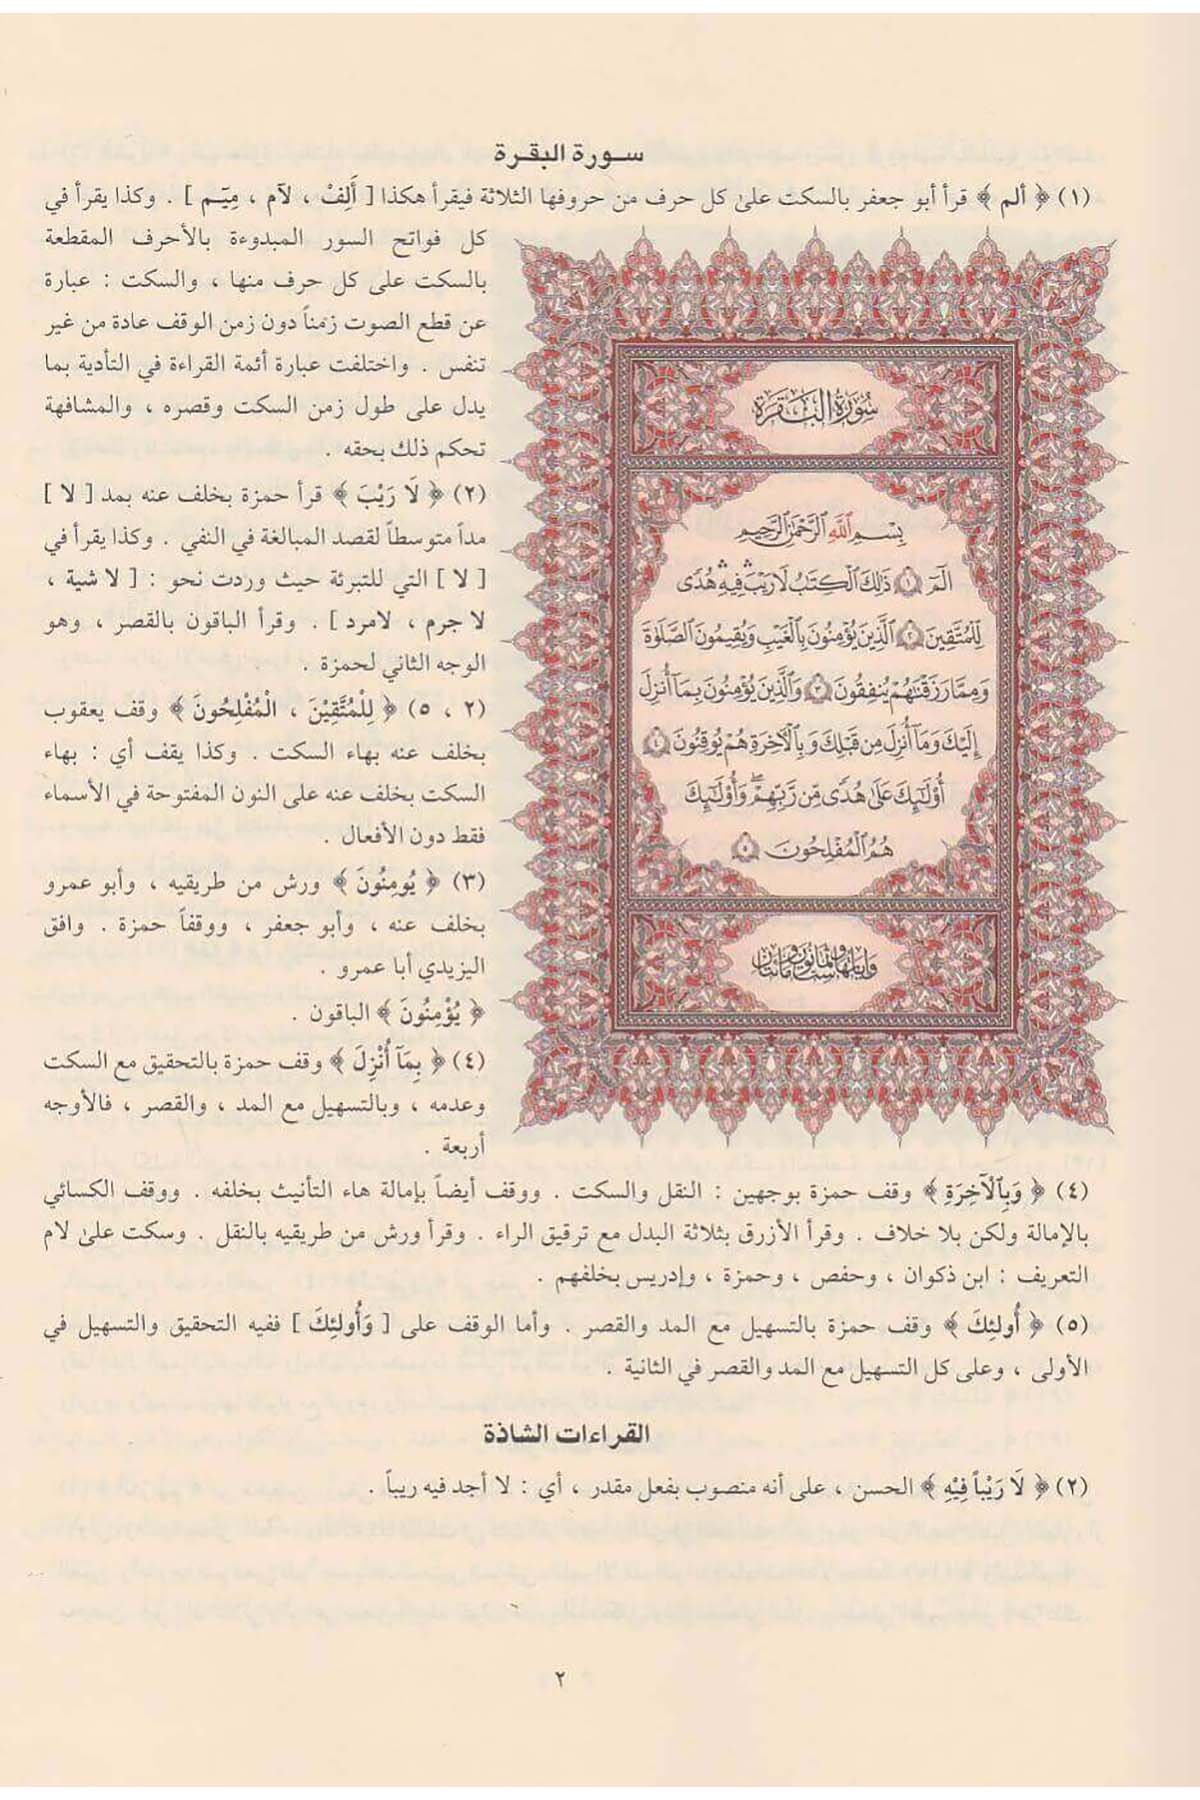 سورة البقرة
(١) ﴿ ألم ﴾ قرأ أبو جعفر بالسكت علىٰ كل حرف من حروفها الثلاثة فيقرأ هكذا [ أَلِفْ ، لآم ، مِيٓم ] . وكذا يقرأ في
كل فواتح السور المبدوءة بالأحرف المقطعة
بالسكت على كل حرف منها ، والسكت : عبارة
عن قطع الصوت زمناً دون زمن الوقف عادة من غير
تنفس . واختلفت عبارة أئمة القراءة في التأدية بما
يدل على طول زمن السكت وقصره ، والمشافهة
تحكم ذلك بحقه .
(٢) ﴿ لَا رَيْبَ ﴾ قرأ حمزة بخلف عنه بمد [ لا ]
مداً متوسطاً لقصد المبالغة في النفي . وكذا يقرأ في
[ لا ] التي للتبرئة حيث وردت نحو : [ لا شية ،
لا جرم ، لامرد ] . وقرأ الباقون بالقصر ، وهو
الوجه الثاني لحمزة .
(٢ ، ٥) ﴿ لِلْمُتَّقِيْنَ ، الْمُفْلِحُونَ ﴾ وقف يعقوب
بخلف عنه بهاء السكت . وكذا يقف أي : بهاء
السكت بخلف عنه على النون المفتوحة في الأسماء
فقط دون الأفعال .
(٣) ﴿ يُومِنُونَ ﴾ ورش من طريقيه ، وأبو عمرو
بخلف عنه ، وأبو جعفر ، ووقفاً حمزة . وافق
اليزيدي أبا عمرو .
﴿ يُؤْمِنُونَ ﴾ الباقون .
(٤) ﴿ بِمَآ أُنْزِلَ ﴾ وقف حمزة بالتحقيق مع السكت
وعدمه ، وبالتسهيل مع المد ، والقصر ، فالأوجه
أربعة .
سُورَةُ البَقَرَة
بِسْمِ اللَّهِ الرَّحْمَٰنِ الرَّحِيمِ
الٓمٓ ١ ذَٰلِكَ الْكِتَٰبُ لَا رَيْبَ ۛ فِيهِ ۛ هُدًى
لِّلْمُتَّقِينَ ٢ الَّذِينَ يُؤْمِنُونَ بِالْغَيْبِ وَيُقِيمُونَ الصَّلَوٰةَ
وَمِمَّا رَزَقْنَٰهُمْ يُنفِقُونَ ٣ وَالَّذِينَ يُؤْمِنُونَ بِمَآ أُنزِلَ
إِلَيْكَ وَمَآ أُنزِلَ مِن قَبْلِكَ وَبِالْآخِرَةِ هُمْ يُوقِنُونَ ٤
أُوْلَٰٓئِكَ عَلَىٰ هُدًى مِّن رَّبِّهِمْ ۖ وَأُوْلَٰٓئِكَ
هُمُ الْمُفْلِحُونَ ٥
وآياتها ست وثمانون ومائتان
(٤) ﴿ وَبِٱلْآخِرَةِ ﴾ وقف حمزة بوجهين : النقل والسكت . ووقف أيضاً بإمالة هاء التأنيث بخلفه . ووقف الكسائي
بالإمالة ولكن بلا خلاف . وقرأ الأزرق بثلاثة البدل مع ترقيق الراء . وقرأ ورش من طريقيه بالنقل . وسكت علىٰ لام
التعريف : ابن ذكوان ، وحفص ، وحمزة ، وإدريس بخلفهم .
(٥) ﴿ أُولئِكَ ﴾ وقف حمزة بالتسهيل مع المد والقصر . وأما الوقف على [ وَأُولئِكَ ] ففيه التحقيق والتسهيل في
الأولى ، وعلى كل التسهيل مع المد والقصر في الثانية .
القراءات الشاذة
(٢) ﴿ لَا رَيْباً فِيْهِ ﴾ الحسن ، على أنه منصوب بفعل مقدر ، أي : لا أجد فيه ريباً .
٢